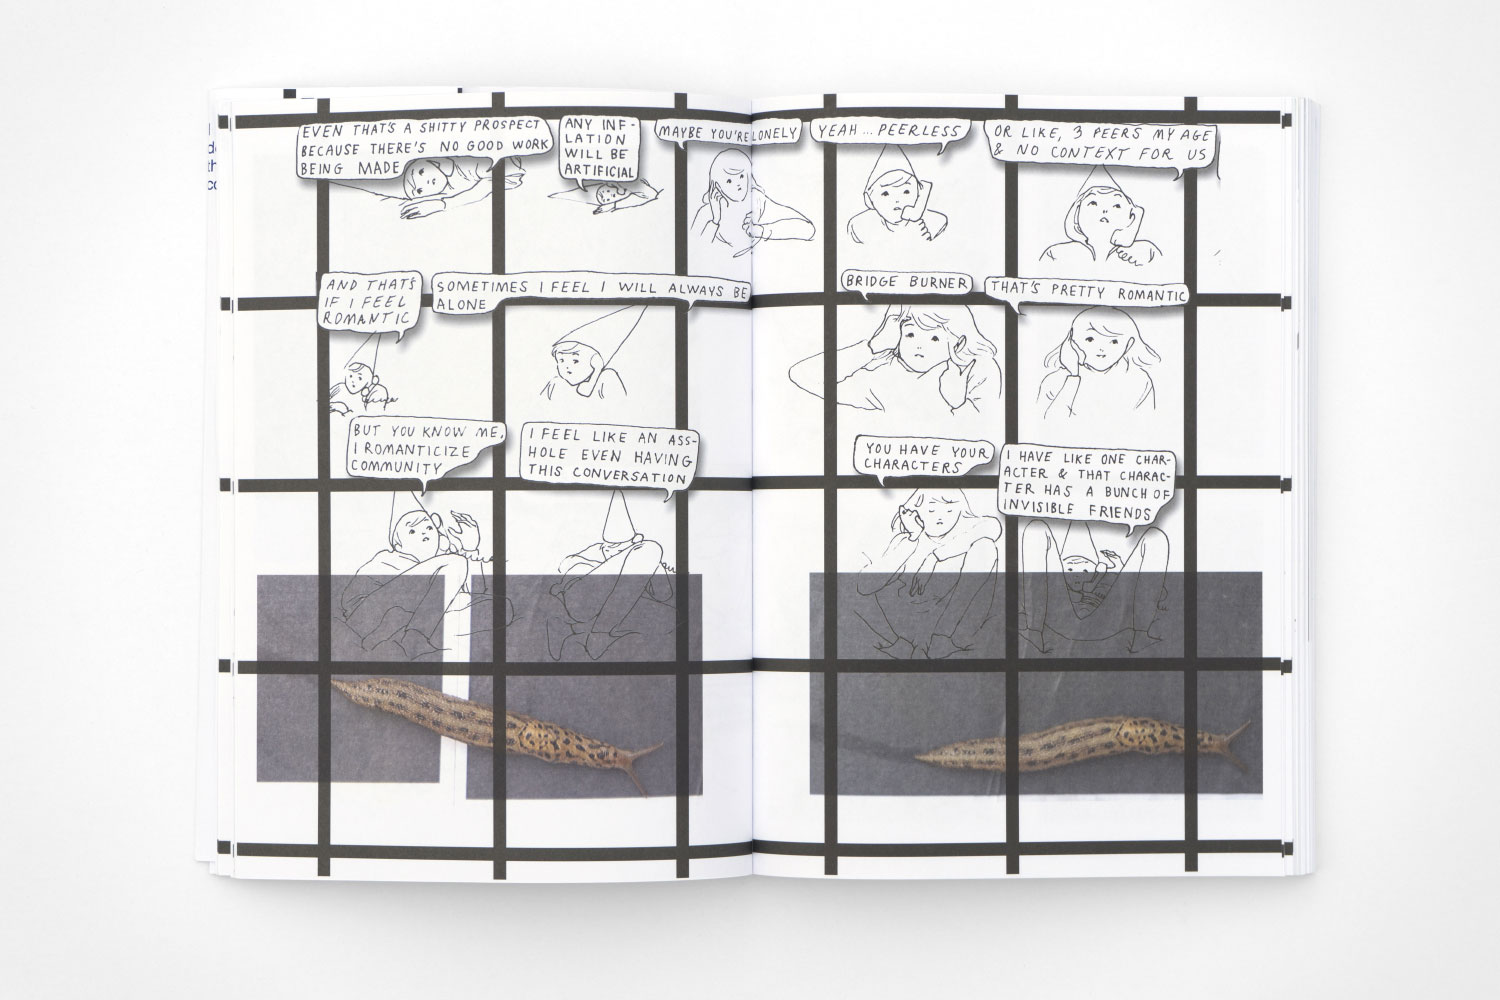 EVEN THAT'S A SHITTY PROSPECT
BECAUSE THERE'S NO GOOD WORK
BEING MADE
ANY INF-
LATION
WILL BE
ARTIFICIAL
MAYBE YOU'RE LONELY
YEAH ... PEERLESS
OR LIKE, 3 PEERS MY AGE
& NO CONTEXT FOR US
AND THAT'S
IF I FEEL
ROMANTIC
SOMETIMES I FEEL I WILL ALWAYS BE
ALONE
BRIDGE BURNER
THAT'S PRETTY ROMANTIC
BUT YOU KNOW ME,
I ROMANTICIZE
COMMUNITY
I FEEL LIKE AN ASS-
HOLE EVEN HAVING
THIS CONVERSATION
YOU HAVE YOUR
CHARACTERS
I HAVE LIKE ONE CHAR-
ACTER & THAT CHARAC-
TER HAS A BUNCH OF
INVISIBLE FRIENDS